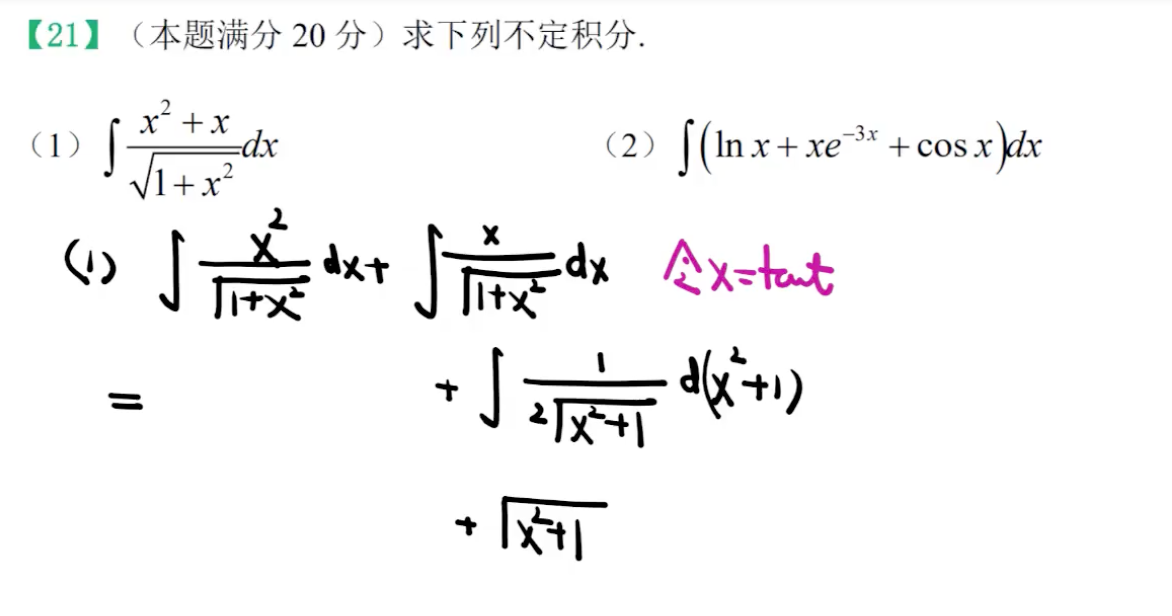 【21】（本题满分 20 分）求下列不定积分.
（1）∫ (x² + x)/√(1 + x²) dx （2）∫(ln x + xe⁻³ˣ + cos x)dx
(1) ∫ x²/√(1+x²) dx + ∫ x/√(1+x²) dx 令x=tant
= + ∫ 1/(2√(x²+1)) d(x²+1)
+ √(x²+1)